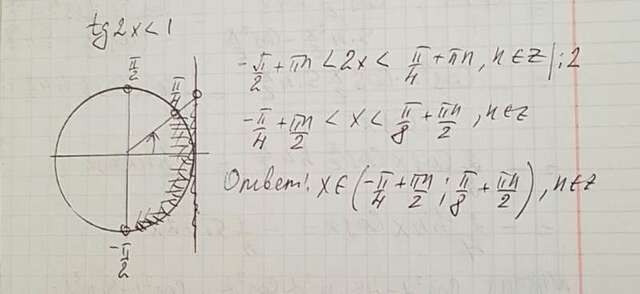 tg2x<1
π/2
π/4
-π/2
-π/2 + πn < 2x < π/4 + πn, n∈z | :2
-π/4 + πn/2 < x < π/8 + πn/2, n∈z
Ответ: x∈(-π/4 + πn/2; π/8 + πn/2), n∈z